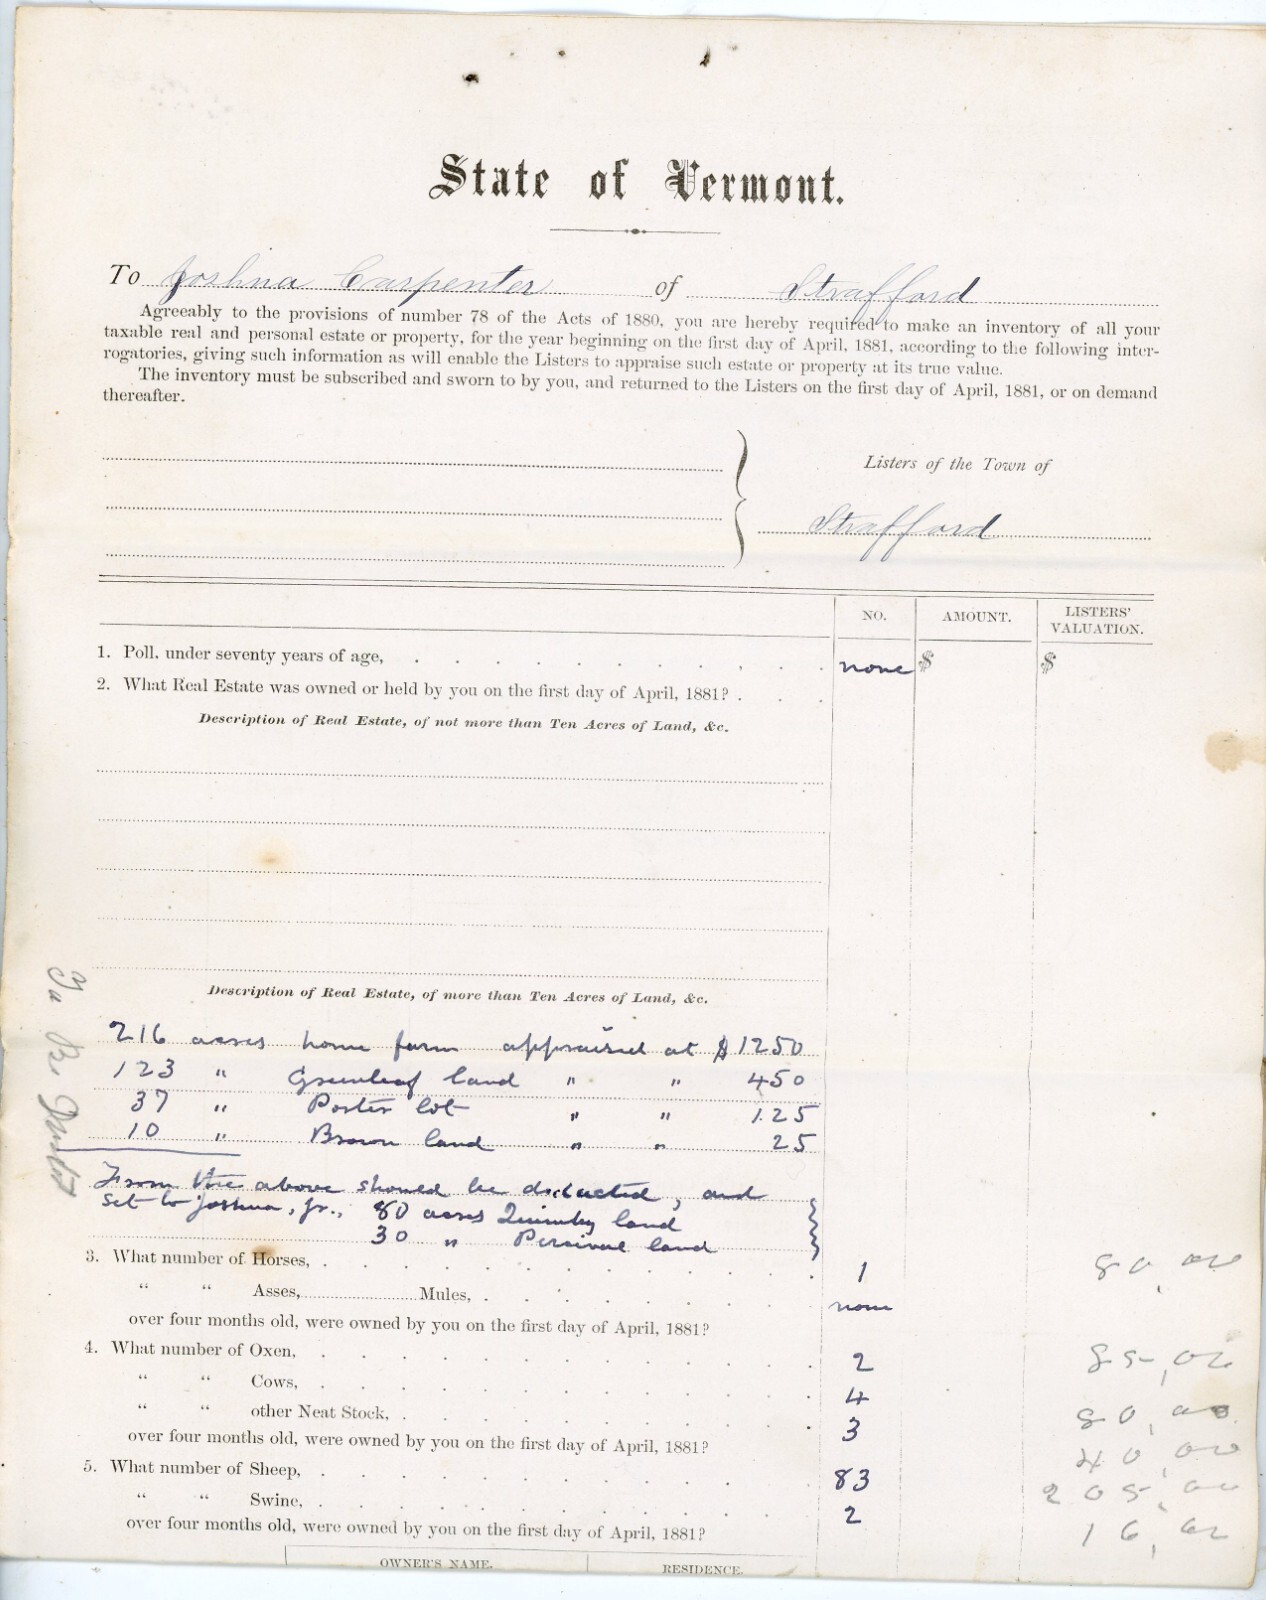 State of Vermont.
To Joshua Carpenter of Strafford
Agreeably to the provisions of number 78 of the Acts of 1880, you are hereby required to make an inventory of all your
taxable real and personal estate or property, for the year beginning on the first day of April, 1881, according to the following inter-
rogatories, giving such information as will enable the Listers to appraise such estate or property at its true value.
The inventory must be subscribed and sworn to by you, and returned to the Listers on the first day of April, 1881, or on demand
thereafter.
Listers of the Town of
Strafford
NO. AMOUNT. LISTERS' VALUATION.
1. Poll, under seventy years of age, none $ $
2. What Real Estate was owned or held by you on the first day of April, 1881?
Description of Real Estate, of not more than Ten Acres of Land, &c.
Description of Real Estate, of more than Ten Acres of Land, &c.
216 acres home farm appraised at $1250
123 " Greenleaf land " " 450
37 " Porter lot " " 125
10 " Brown land " " 25
To Be
From the above should be deducted, and
set to Joshua, Jr., 80 acres Quimby land
30 " Percival land
3. What number of Horses, 1 80,00
" " Asses, Mules, none
over four months old, were owned by you on the first day of April, 1881?
4. What number of Oxen, 2 85,00
" " Cows, 4 80,00
" " other Neat Stock, 3 40,00
over four months old, were owned by you on the first day of April, 1881?
5. What number of Sheep, 83 205,00
" " Swine, 2 16,00
over four months old, were owned by you on the first day of April, 1881?
OWNER'S NAME. RESIDENCE.